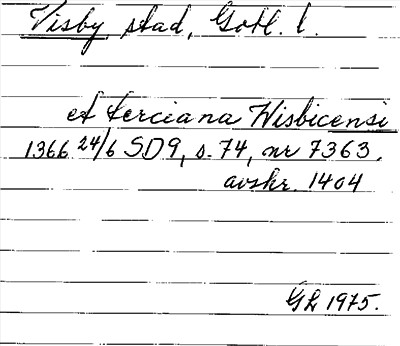 Visby stad, Gotl. l.
et terciana Wisbicensi
1366 24/6 SD9, s. 74, nr 7363,
avskr. 1404
GL 1975.